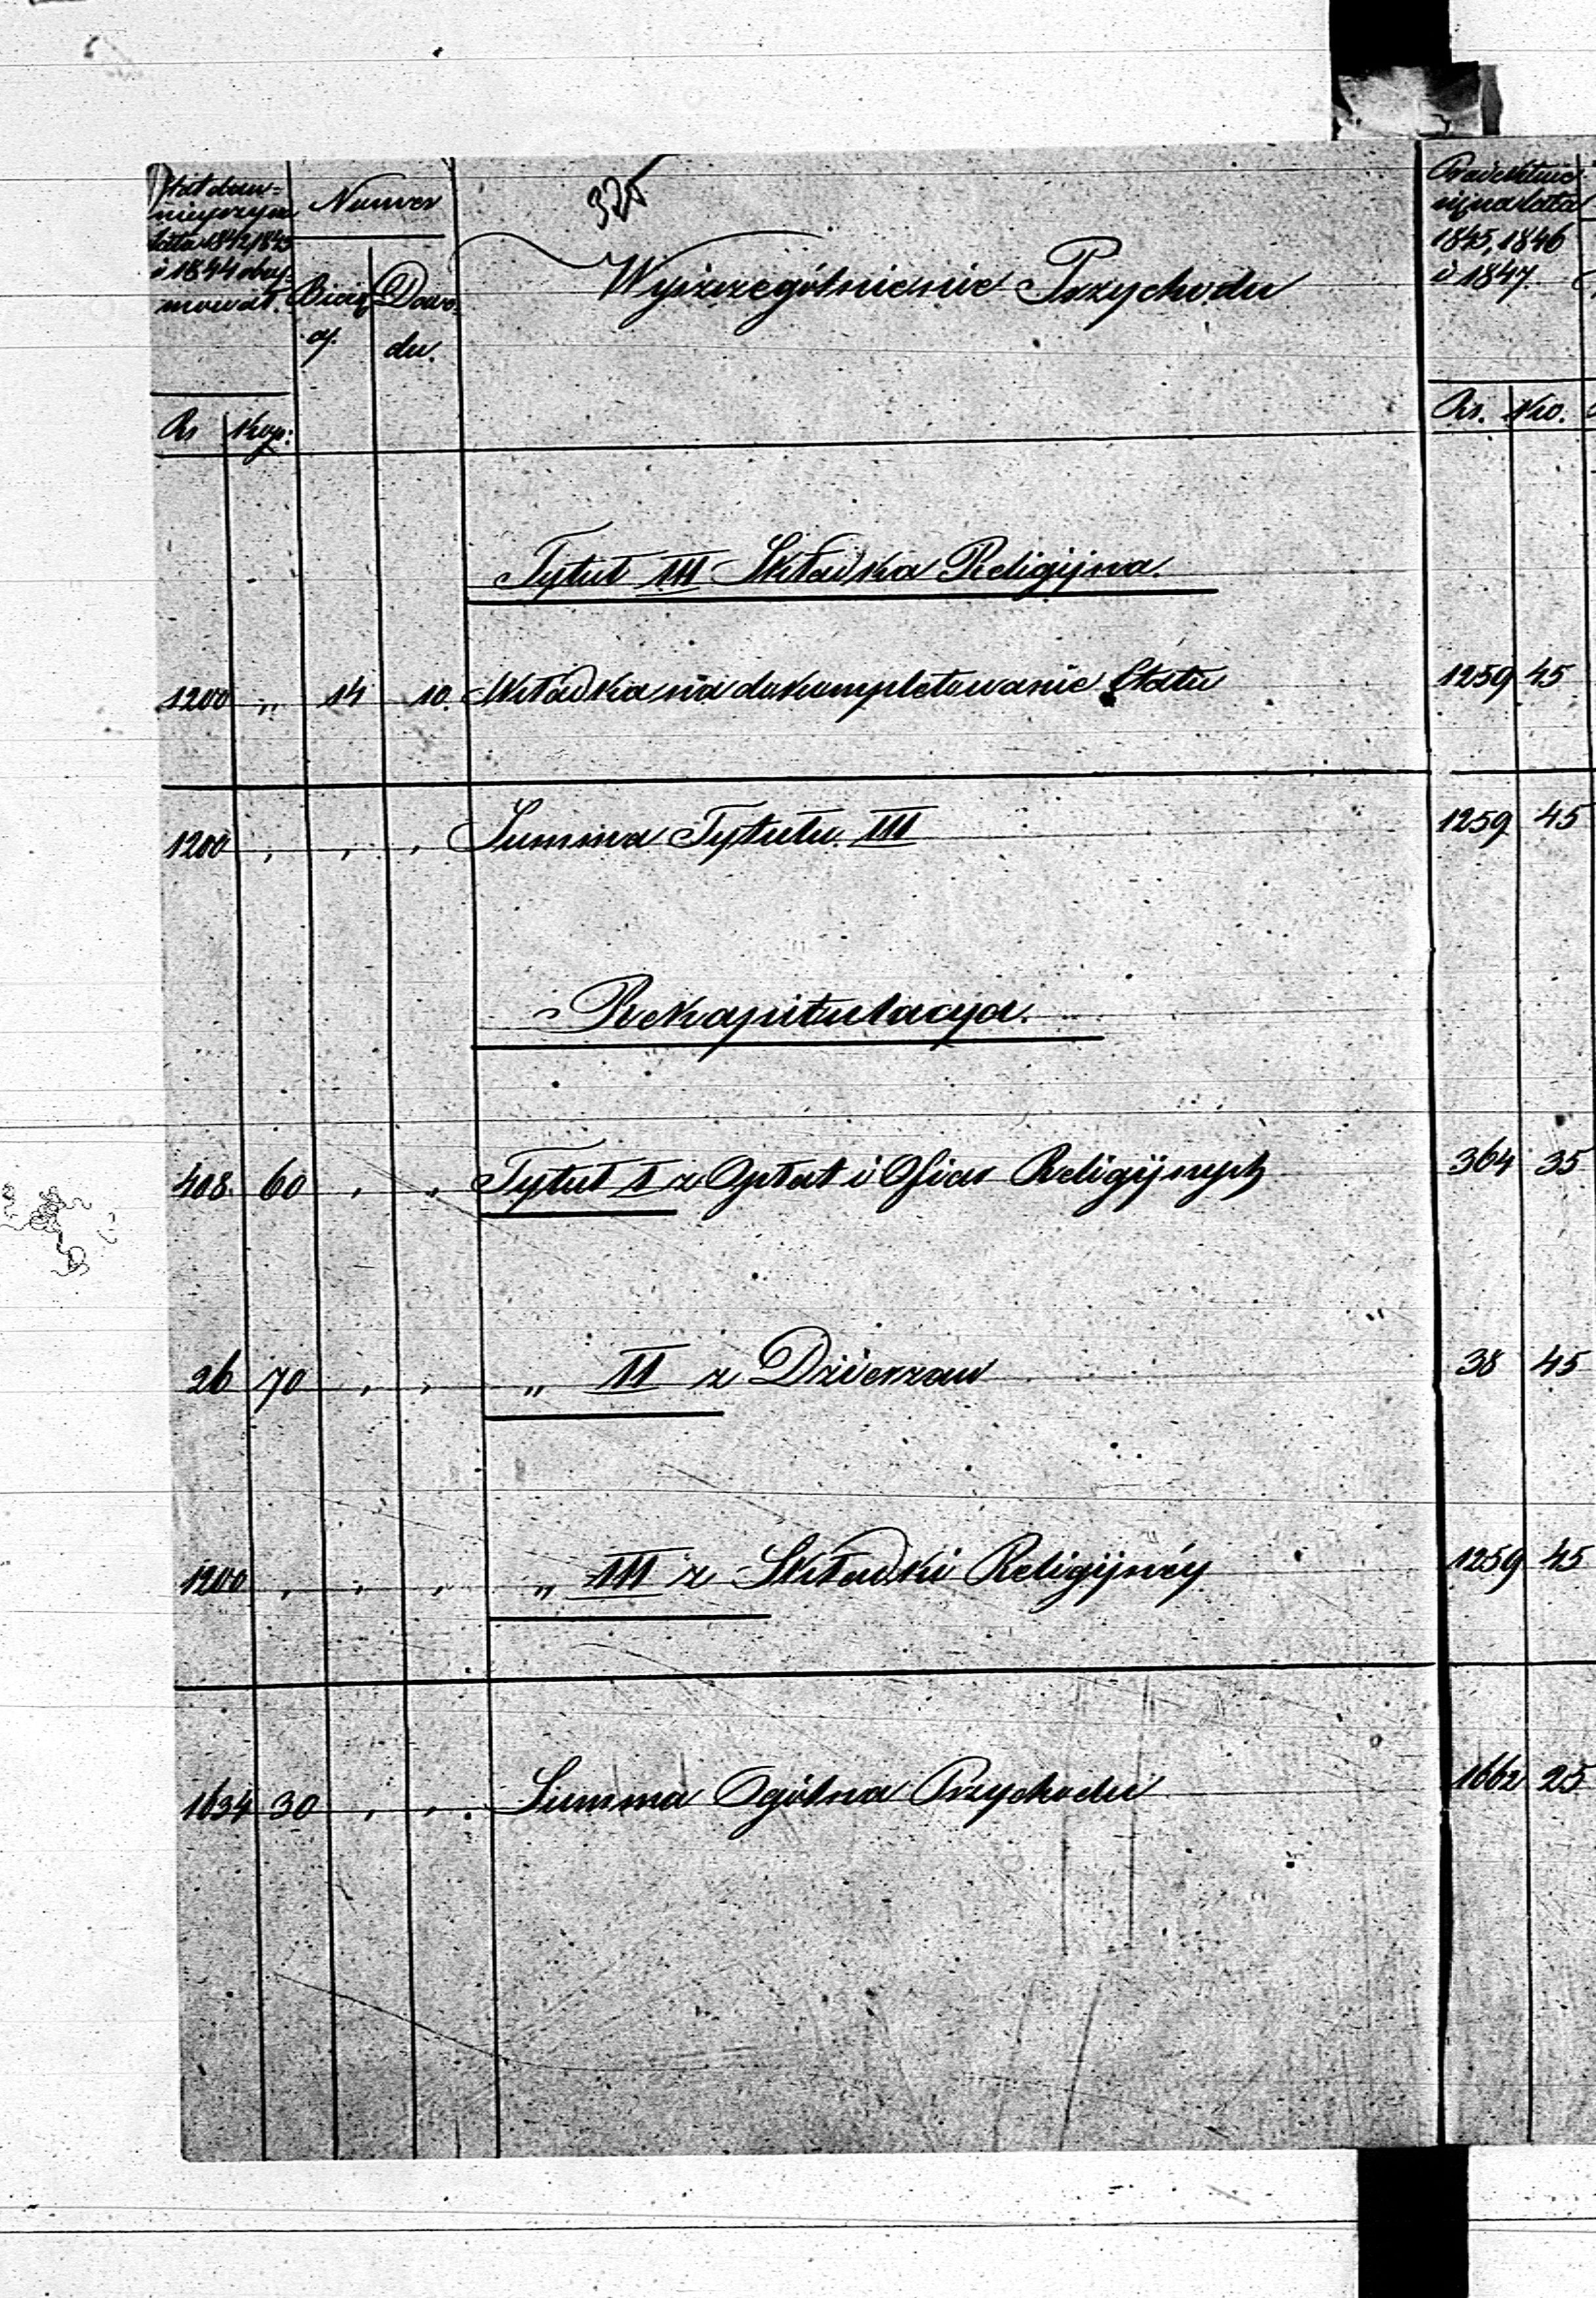 325
Etat daw=
nieyszy na
lata 1842, 1843
i 1844 obey-
mował.
Numer
Bieżą
cy.
Dowo-
du.
Wyszczególnienie Przychodu
na lata
1845, 1846
i 1847.
Rs Kop:
Rs. Ko.
Tytuł III Składka Religijna.
1200 „ 14 10. Składka na dokompletowanie Etatu 1259 45
1200 , , , Summa Tytułu III 1259 45
Rekapitulacya.
408 60 , , Tytuł I z Opłat i Ofiar Religijnych 364 35
26 70 , , „ II z Dzierzaw 38 45
1200 , , , „ III z Składki Religijnéy 1259 45
1634 30 , , . Summa Ogólna Przychodu 1662 25